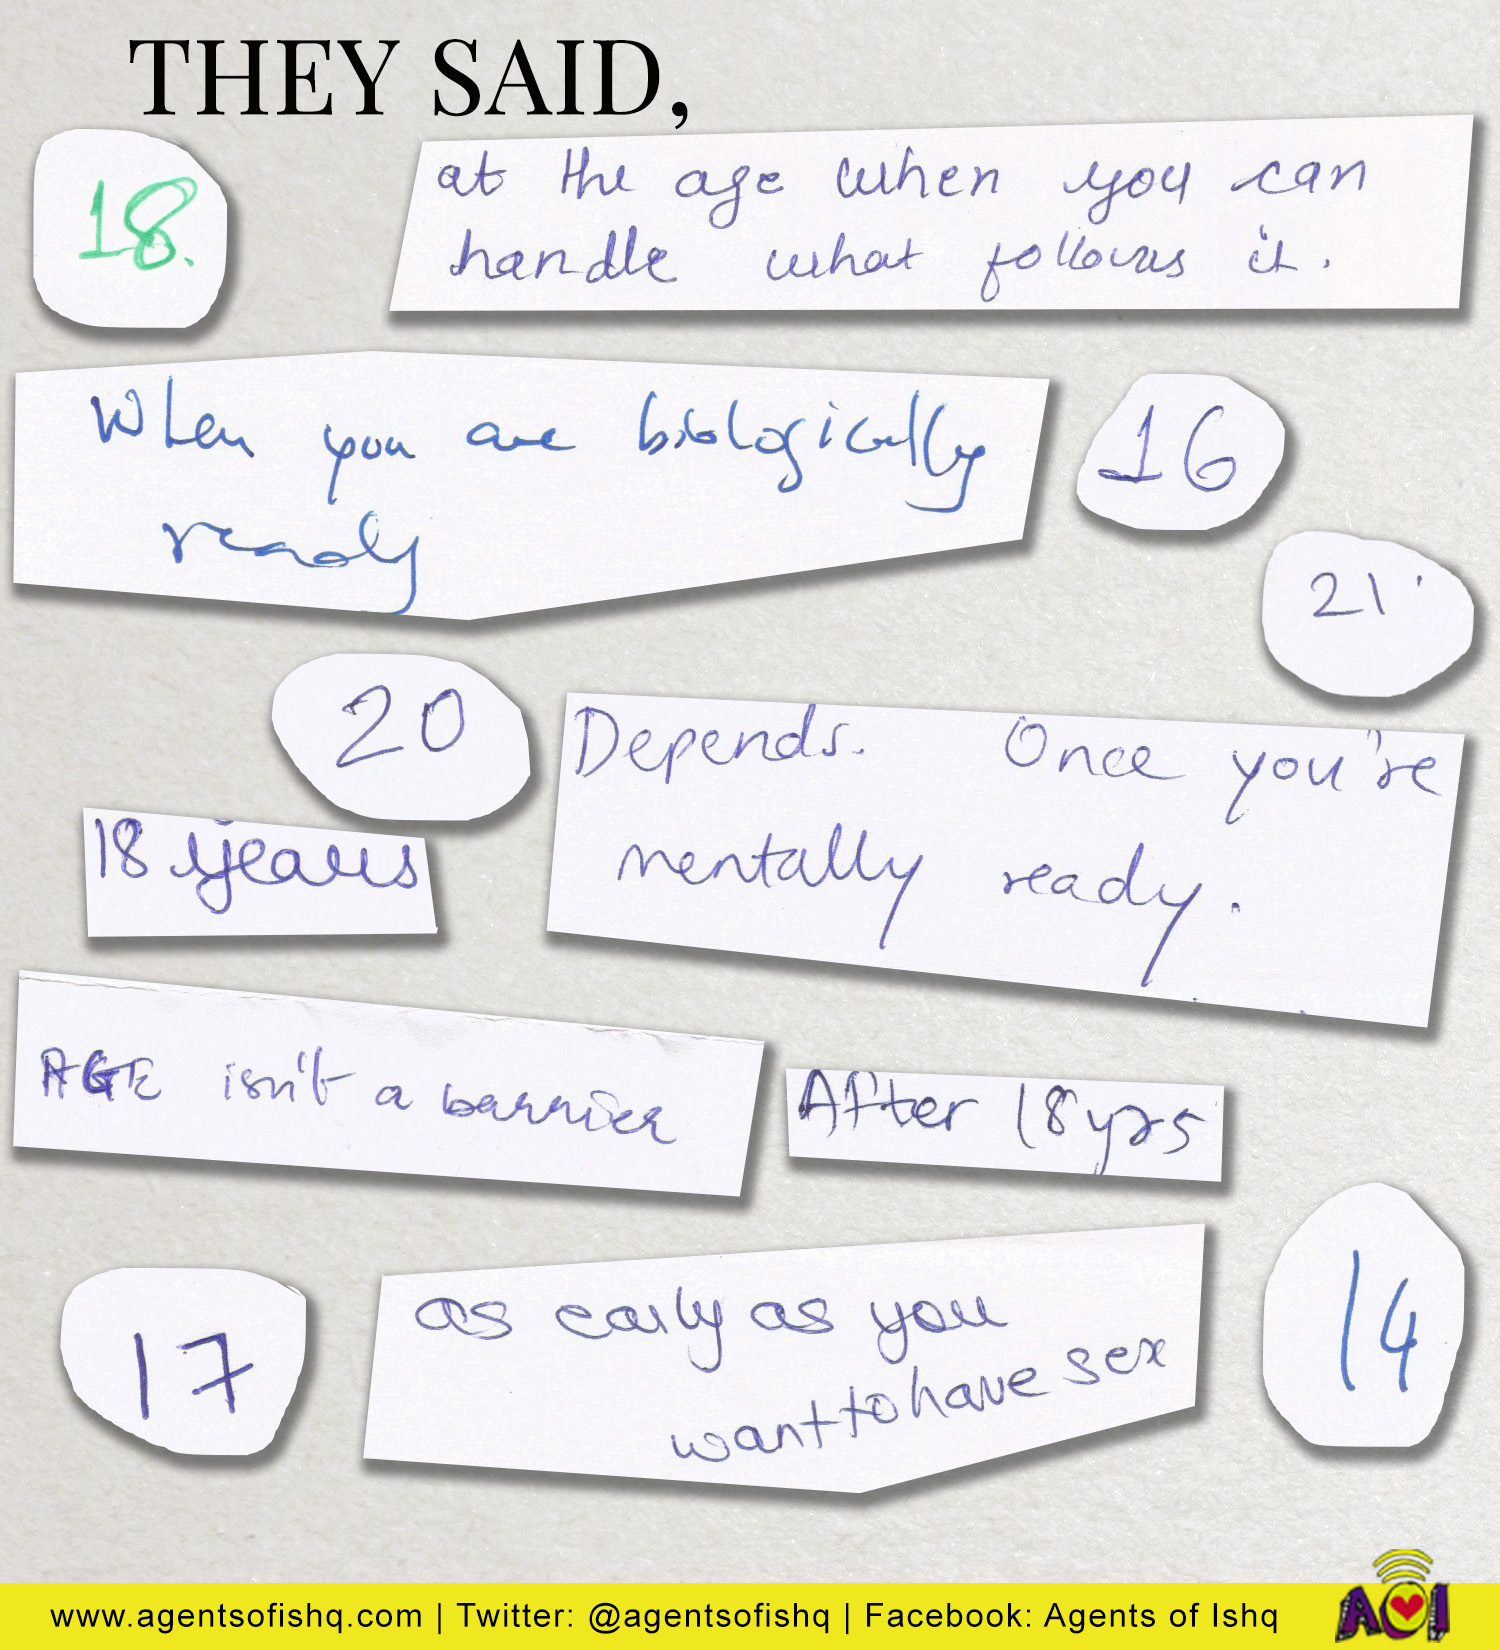 THEY SAID,
18.
at the age when you can
handle what follows it.
When you are biologically
ready
16
21
20
Depends. Once you're
mentally ready.
18 years
AGE isn't a barrier
After 18 yrs
17
as early as you
want to have sex
14
www.agentsofishq.com | Twitter: @agentsofishq | Facebook: Agents of Ishq
AOI